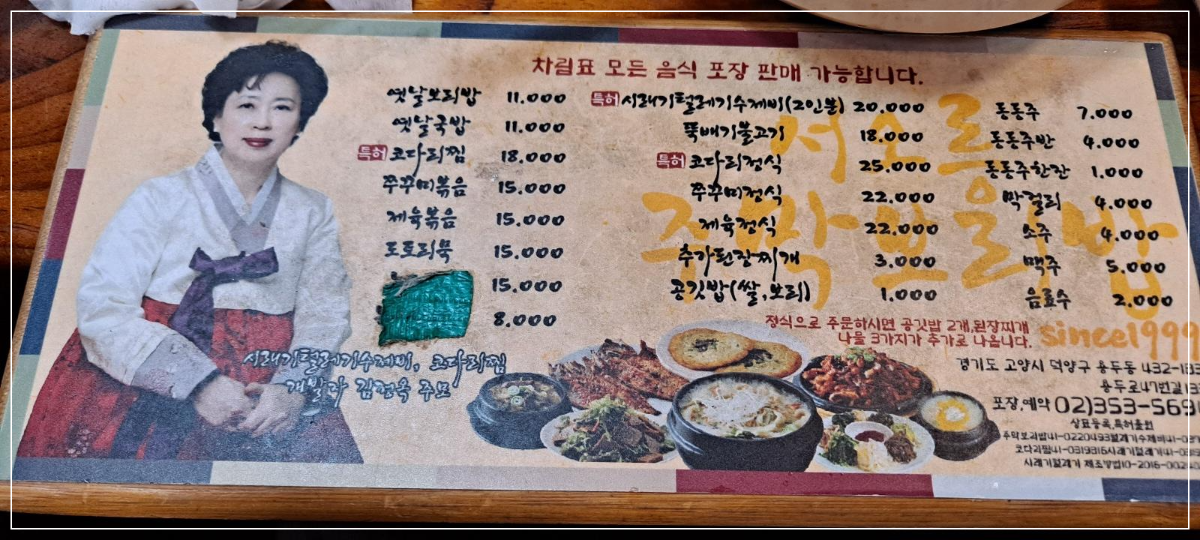 차림표 모든 음식 포장 판매 가능합니다.
옛날보리밥 11.000
옛날국밥 11.000
특허 코다리찜 18.000
쭈꾸미볶음 15.000
제육볶음 15.000
도토리묵 15.000
15.000
8.000
특허 시래기털레기수제비(2인분) 20.000
뚝배기불고기 18.000
특허 코다리정식 25.000
쭈꾸미정식 22.000
제육정식 22.000
추가된장찌개 3.000
공깃밥(쌀,보리) 1.000
동동주 7.000
동동주반 4.000
동동주한잔 1.000
막걸리 4.000
소주 4.000
맥주 5.000
음료수 2.000
서오릉
주막보리밥
since1999
정식으로 주문하시면 공깃밥 2개,된장찌개
나물 3가지가 추가로 나옵니다.
시래기털레기수제비, 코다리찜
개발자 김정옥 주모
경기도 고양시 덕양구 용두동 432-183
용두로47번길
포장,예약 02)353-569
상표등록,특허출원
주막보리밥41-0220493털레기수제비41-
코다리찜41-0319316시래기털레기41-
시래기털레기 제조방법10-2016-002